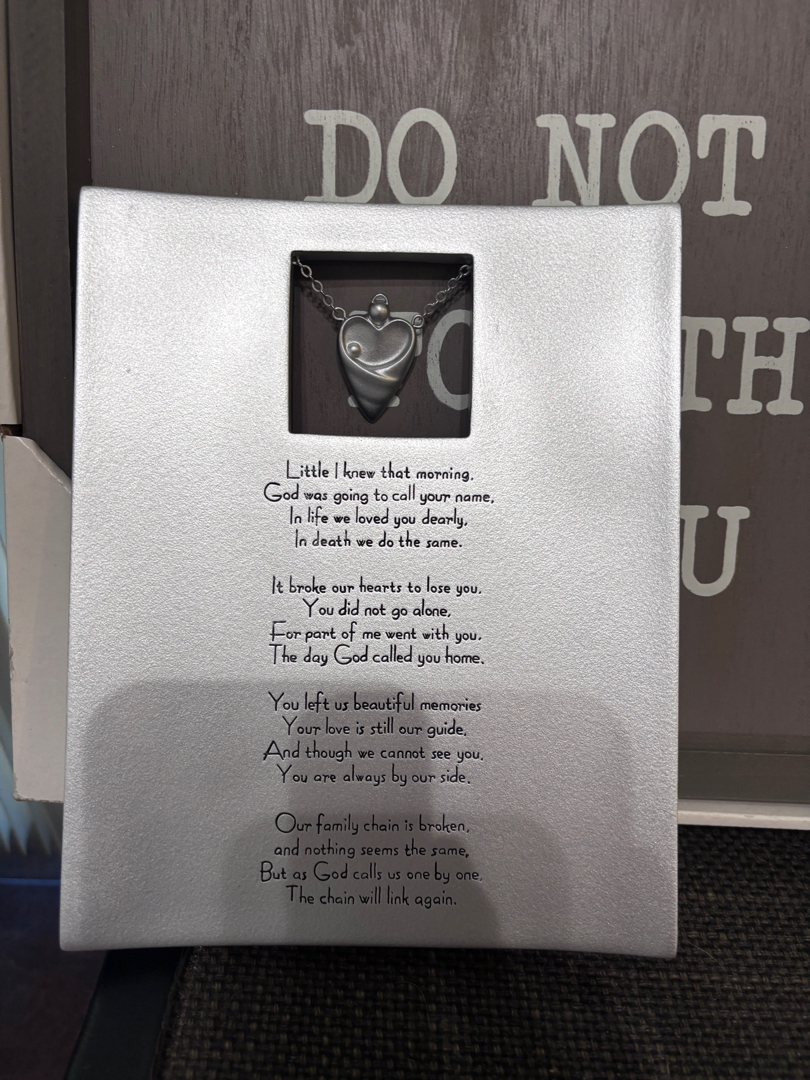 DO NOT
TH
U
Little I knew that morning,
God was going to call your name,
In life we loved you dearly,
In death we do the same.
It broke our hearts to lose you,
You did not go alone,
For part of me went with you,
The day God called you home.
You left us beautiful memories
Your love is still our guide,
And though we cannot see you,
You are always by our side.
Our family chain is broken,
and nothing seems the same,
But as God calls us one by one,
The chain will link again.